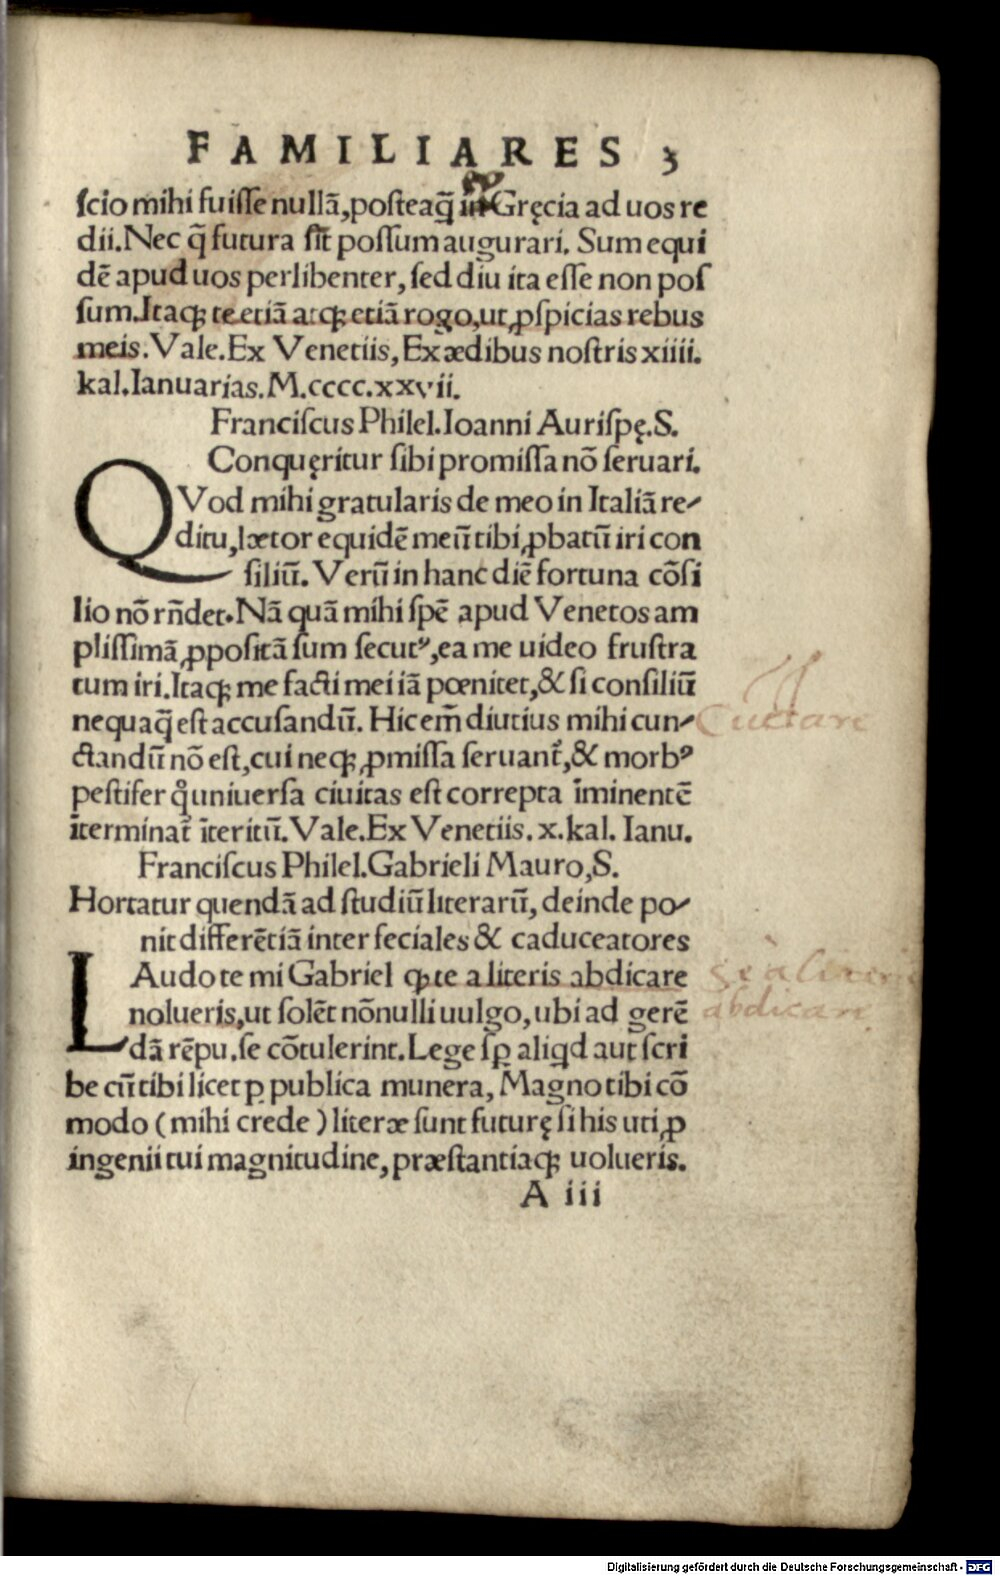 FAMILIARES 3
ſcio mihi fuiſſe nullã,poſteaq̃ in Gręcia ad uos re
dii.Nec q̃ futura ſit poſſum augurari. Sum equi
dẽ apud uos perlibenter, ſed diu ita eſſe non poſ
ſum.Itaqꝫ te etiã atqꝫ etiã rogo,ut ꝓſpicias rebus
meis. Vale.Ex Venetiis, Ex ædibus noſtris xiiii.
kal.Ianuarias.M.cccc.xxvii.
Franciſcus Philel.Ioanni Auriſpę.S.
Conquęritur ſibi promiſſa nõ ſeruari.
QVod mihi gratularis de meo in Italiã re-
ditu,lætor equidẽ meũ tibi ꝓbatũ iri con
ſiliũ. Verũ in hanc diẽ fortuna cõſi
lio nõ rñdet. Nã quã mihi ſpẽ apud Venetos am
pliſſimã ꝓpoſitã ſum ſecutꝰ,ea me uideo fruſtra
tum iri.Itaqꝫ me facti mei iã pœnitet,& ſi conſiliũ
nequaq̃ eſt accuſandũ. Hic em̃ diutius mihi cun-
ctandũ nõ eſt,cui neqꝫ ꝓmiſſa ſeruant̃,& morbꝰ
peſtifer qͦ uniuerſa ciuitas eſt correpta ĩminentẽ
ĩterminat̃ ĩteritũ. Vale.Ex Venetiis. x.kal. Ianu.
Franciſcus Philel.Gabrieli Mauro,S.
Hortatur quendã ad ſtudiũ literarũ, deinde po-
nit differẽtiã inter feciales & caduceatores
LAudo te mi Gabriel qꝫ te a literis abdicare
nolueris,ut ſolẽt nõnulli uulgo, ubi ad gerẽ
dã rẽpu.ſe cõtulerint.Lege ſꝑ aliqd aut ſcri
be cũ tibi licet ꝑ publica munera, Magno tibi cõ
modo (mihi crede) literæ ſunt futurę ſi his uti ꝓ
ingenii tui magnitudine, præſtantiaqꝫ uolueris.
A iii
Cuctare
se à literis
abdicare
Digitalisierung gefördert durch die Deutsche Forschungsgemeinschaft - DFG